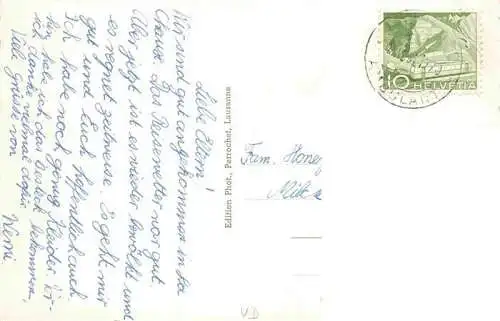 Liebe Eltern!
Wir sind gut angekommen in La
Chaux. Das Reisewetter war gut.
Aber jetzt ist es wieder bewölkt und
es regnet zeitweise. Es geht mir
gut und Euch hoffentlich auch
Ich habe noch genug Kleider.
hin habe ich das Besteck bekommen,
ich danke vielmal dafür.
Viele Grüsse von
Werni
Edition Phot. Perrochet, Lausanne
Fam. Honeg
10 HELVETIA
VD